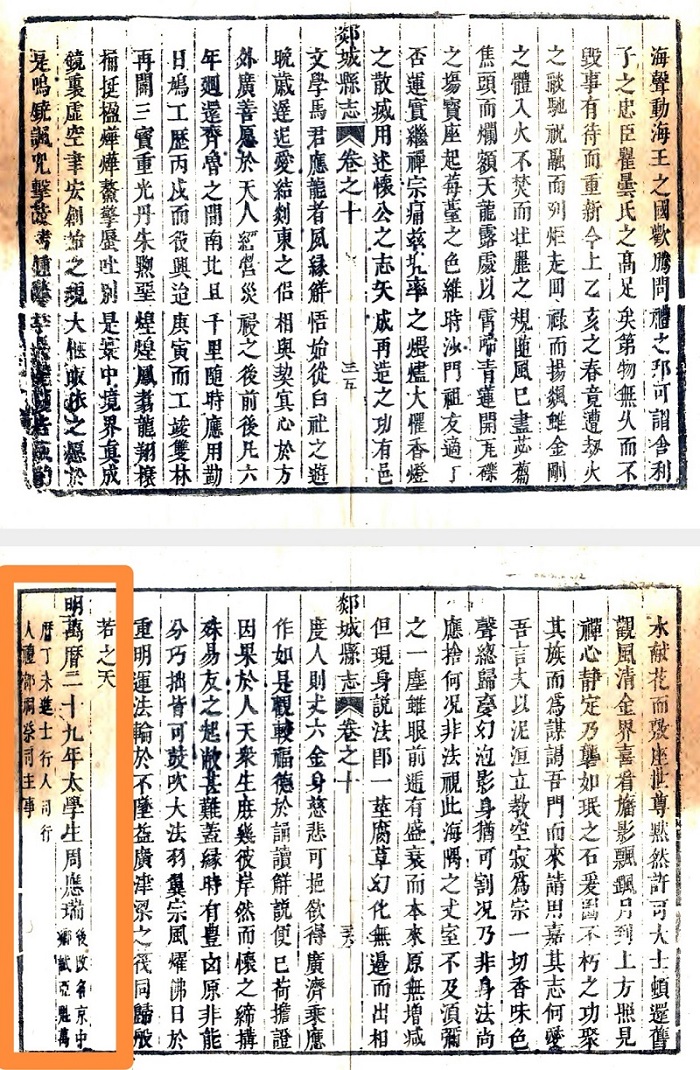 海聲動海王之國歡騰問禮之邦可謂舍利
子之忠臣瞿曇氏之高足矣第物無久而不
毀事有待而重新今上乙亥之春竟遭刼火
之燄馳祝融而列炬走回祿而揚飆雖金剛
之體入火不焚而壯麗之規隨風已盡苾蒭
焦頭而爛額天龍露處以霄啼青蓮開瓦礫
之場寶座起莓薹之色維時沙門祖友適丁
否運實繼禪宗痛茲
之煨燼大懼香燈
之散 用述懷公之志矢成再造之功有邑
郯城縣志 卷之十 三五
文學馬君應龍者夙緣解悟始從白社之遊
晩歲遲
愛結剡東之侶相與契冥心於方
外廣善愿於天人經營災祲之後前後凡六
年廻還齊魯之間南北且千里隨時應用勤
日鳩工歷丙戌而役興迨庚寅而工竣雙林
再開三寶重光丹朱
堊煌煌鳳翥龍翔
挺楹
別是
中境界真成
鏡裏虛空聿宏創始之
大
依之
於
是鳴鐃
擊
水献花而
座世尊默然許可大士頓還舊
觀風清金界喜看旛影飄颻月到上方照見
禪心静定乃礱如珉之石爰圖不朽之功聚
其族而為謀謁吾門而來請用嘉其志何愛
吾言夫以泥洹立教空寂為宗一切香味色
聲總歸臺幻泡影身猶可割况乃非身法尚
應捨何况非法視此海隅之丈室不及湏彌
之一塵雖眼前逓有盛衰而本來原無增减
但現身説法即一莖腐草幻化無邊而出相
郯城縣志 卷之十 三六
度人則丈六金身慈悲可挹欲得廣濟乘應
作如是觀較福德於誦讀觧説便已荷擔證
因果於人天衆生庶幾彼岸然而懷之締搆
殊易友之起敝甚難蓋緣時有豊凶原非能
分巧拙皆可鼓吹大法羽翼宗風耀佛日於
重明運法輪於不墜益廣津梁之筏同歸般
若之天
明萬曆二十九年太學生周應瑞後改名京中
鄉試亞魁萬
暦丁未進士行人司行
人
禮部祠祭司主事